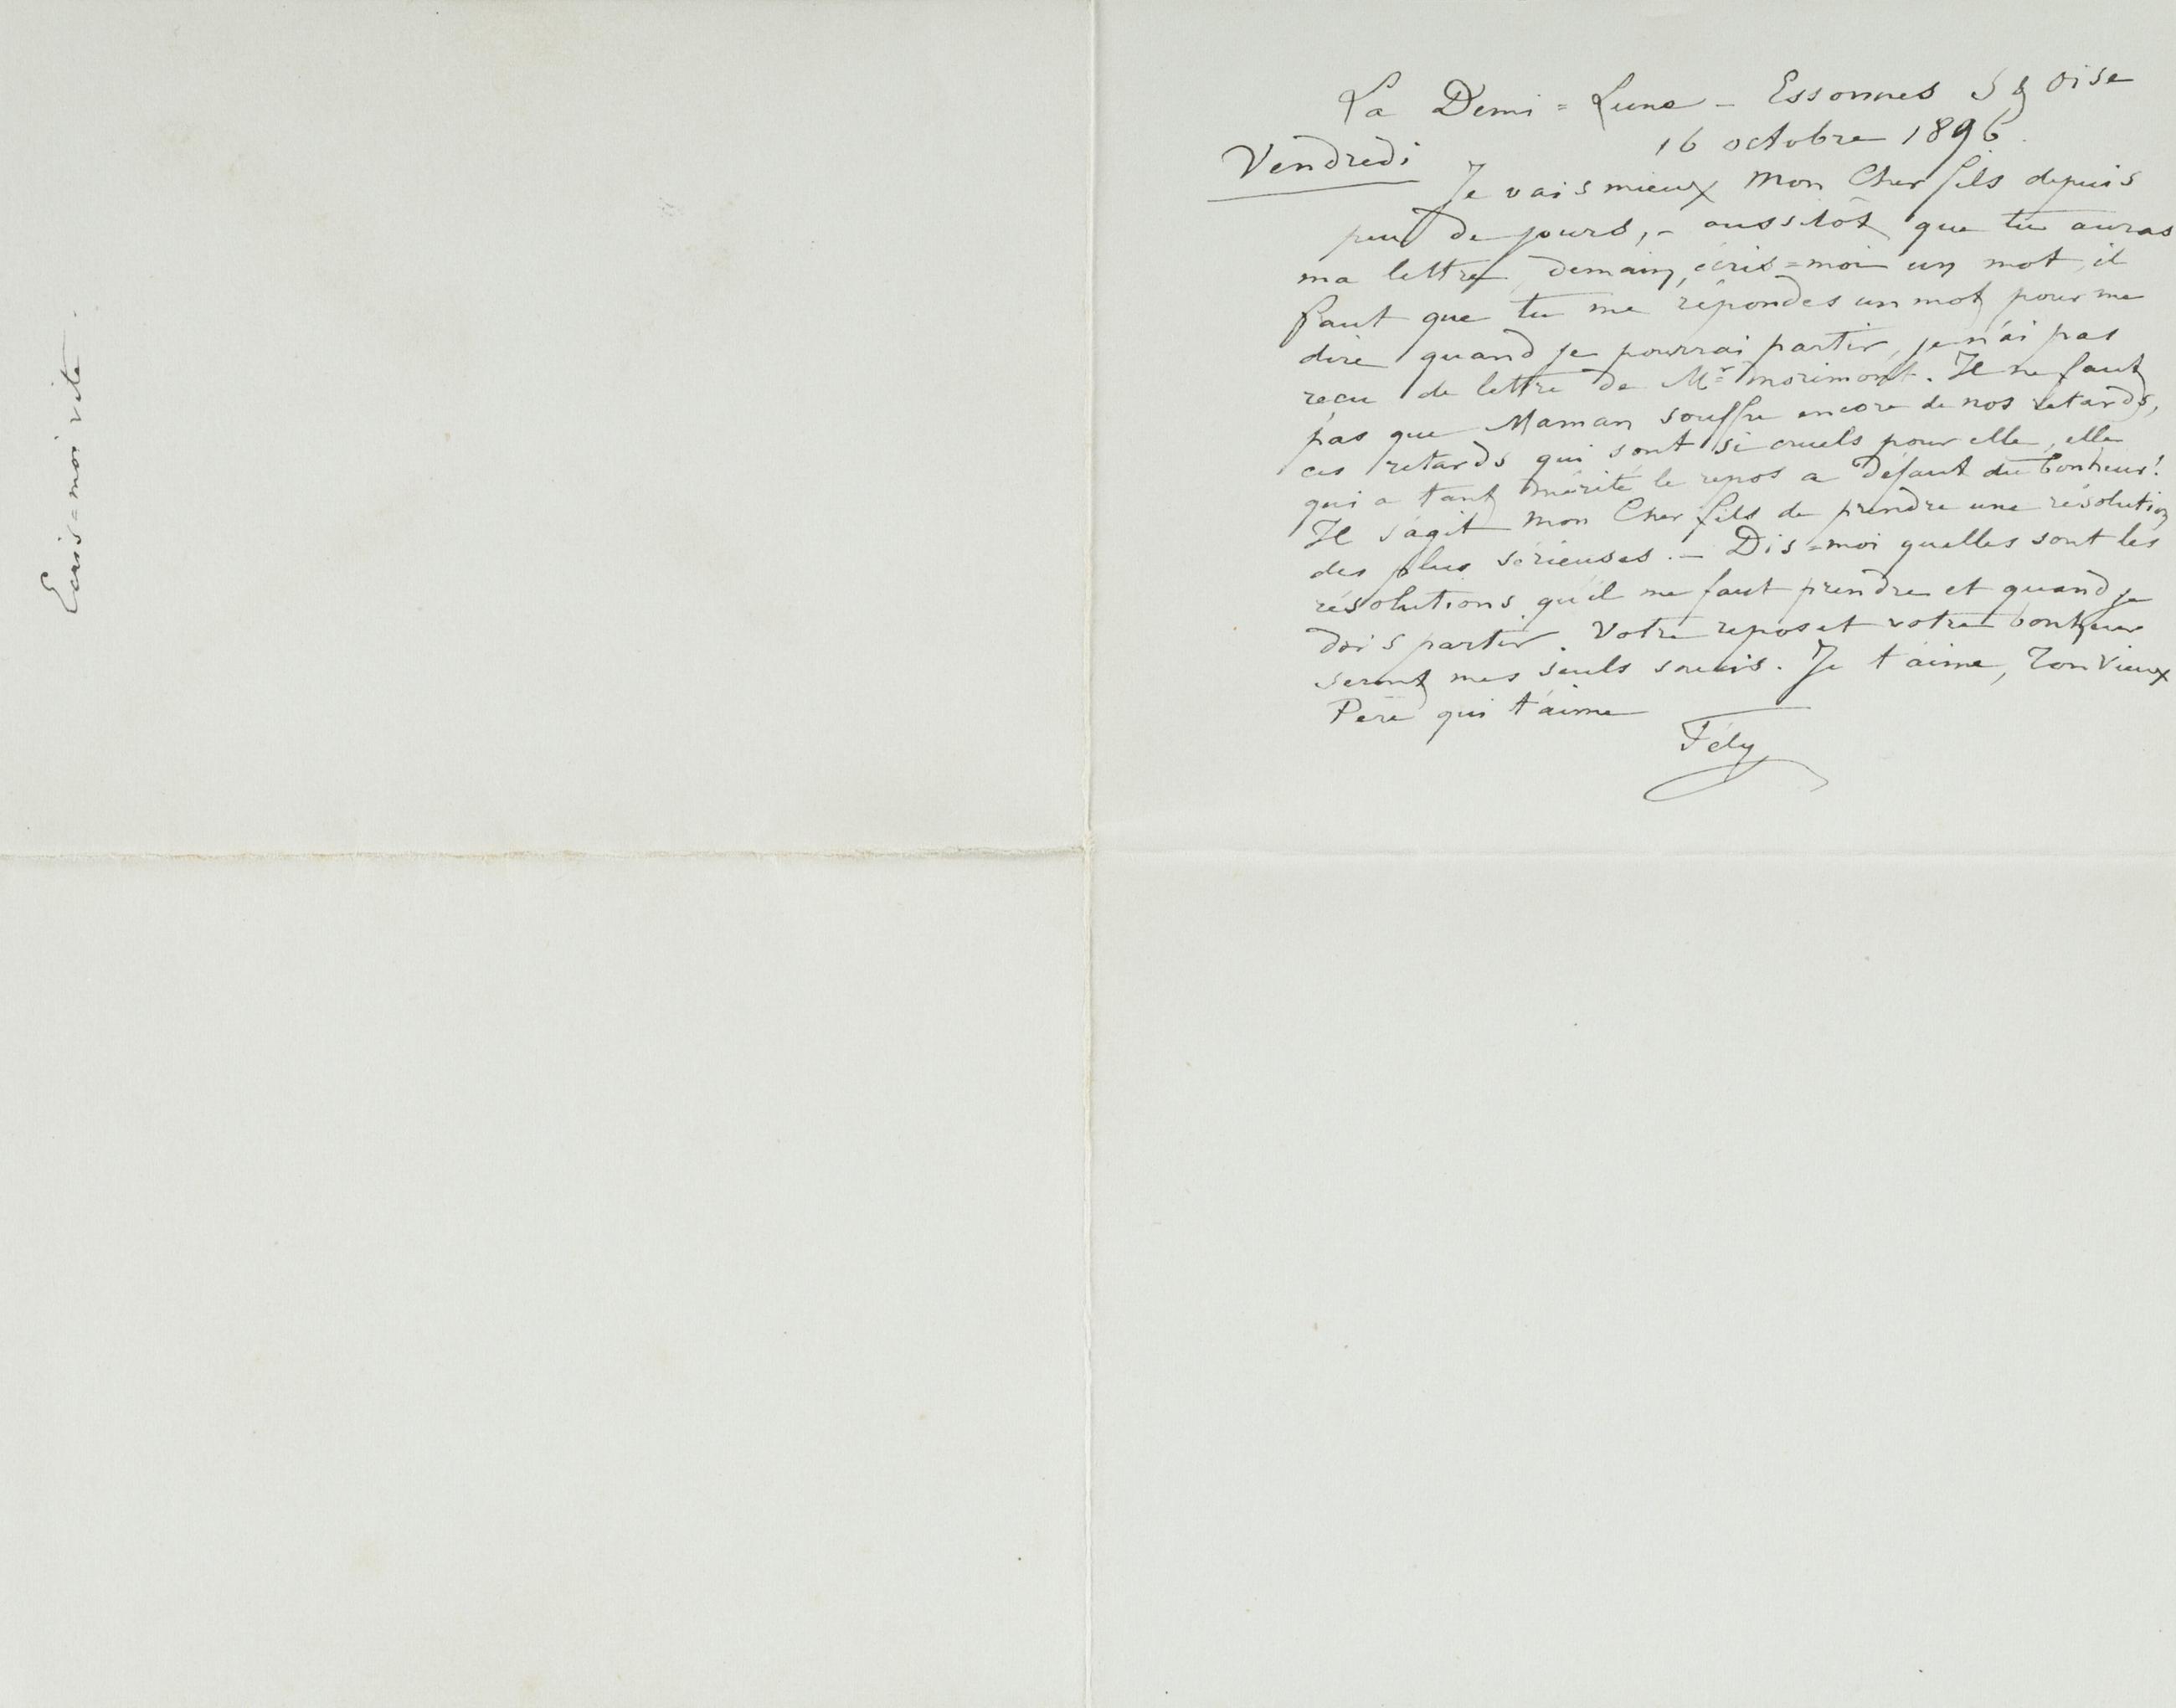 La Demi=Lune – Essonnes S & Oise
16 octobre 1896.
Vendredi
Je vais mieux Mon Cher fils depuis
peu de jours, – aussitôt que tu auras
ma lettre, demain, écris=moi un mot, il
faut que tu me répondes un mot pour me
dire quand je pourrai partir, je n'ai pas
reçu de lettre de Mr Morimont. Il ne faut
pas que Maman souffre encore de nos retards,
ces retards qui sont si cruels pour elle, elle
qui a tant mérité le repos a défaut du bonheur!
Il s'agit Mon Cher fils de prendre une résolution
des plus sérieuses. – Dis=moi quelles sont les
résolutions qu'il me faut prendre et quand je
dois partir. Votre repos et votre bonheur
seront mes seuls soucis. Je t'aime, Ton Vieux
Père qui t'aime
Fély
Ecris=moi vite.